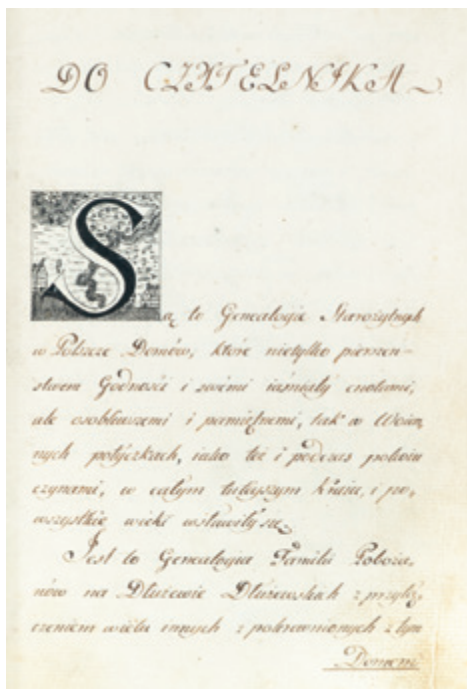 DO CZYTELNIKA
Są to Genealogie Starożytnych
w Polszcze Domów, które nietylko pierszeń-
stwem Godności i swémi iaśniały cnotami,
ale osobliwszemi i pamiętnemi, tak w Woien,
nych potyczkach, iako też i podczas pokoiu
czynami, w całym tuteyszym Kraiu, i po,
wszystkie wieki wsławiły się.
Jest to Genealogia Familii Poboża,
nów na Dłużewie Dłużewskich z przyłą,
czeniem wielu innych z pokrewnionych z tym
Domem